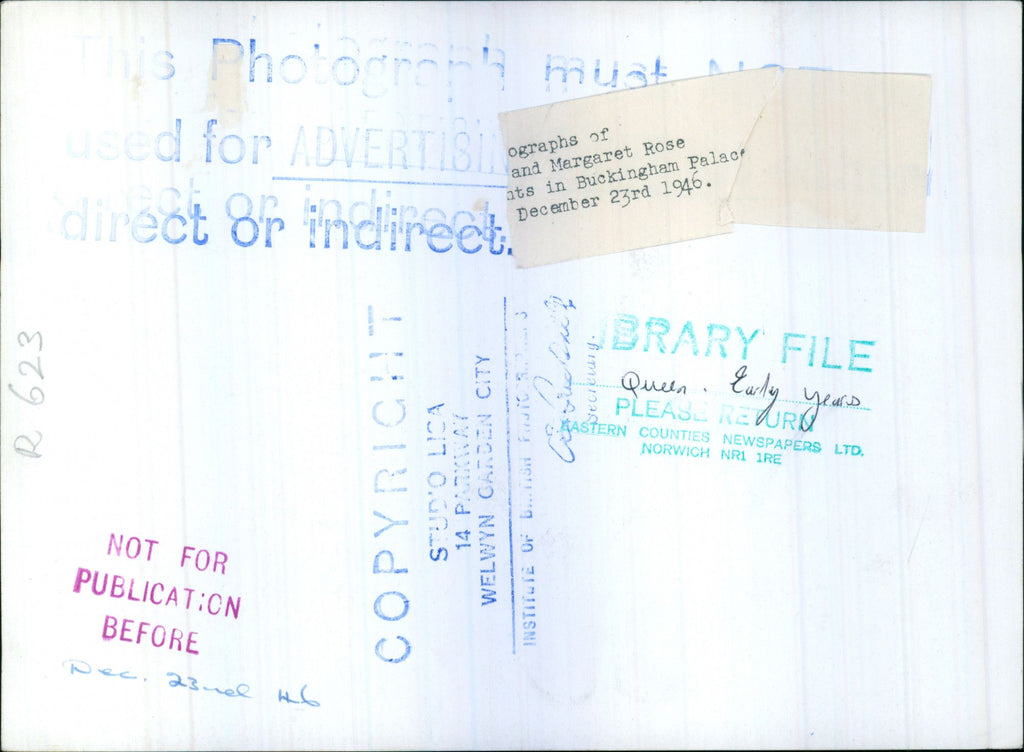 This Photograph must NOT
used for ADVERTISIN
direct or indirect.
ographs of
and Margaret Rose
nts in Buckingham Palace
December 23rd 1946.
R 623
COPYRIGHT
STUDIO LISA
14 PARKWAY
WELWYN GARDEN CITY
INSTITUTE OF BRITISH PHOTO
Secretary.
LIBRARY FILE
Queen. Early years
PLEASE RETURN
EASTERN COUNTIES NEWSPAPERS LTD.
NORWICH NR1 1RE
NOT FOR
PUBLICATION
BEFORE
Dec. 23rd 46